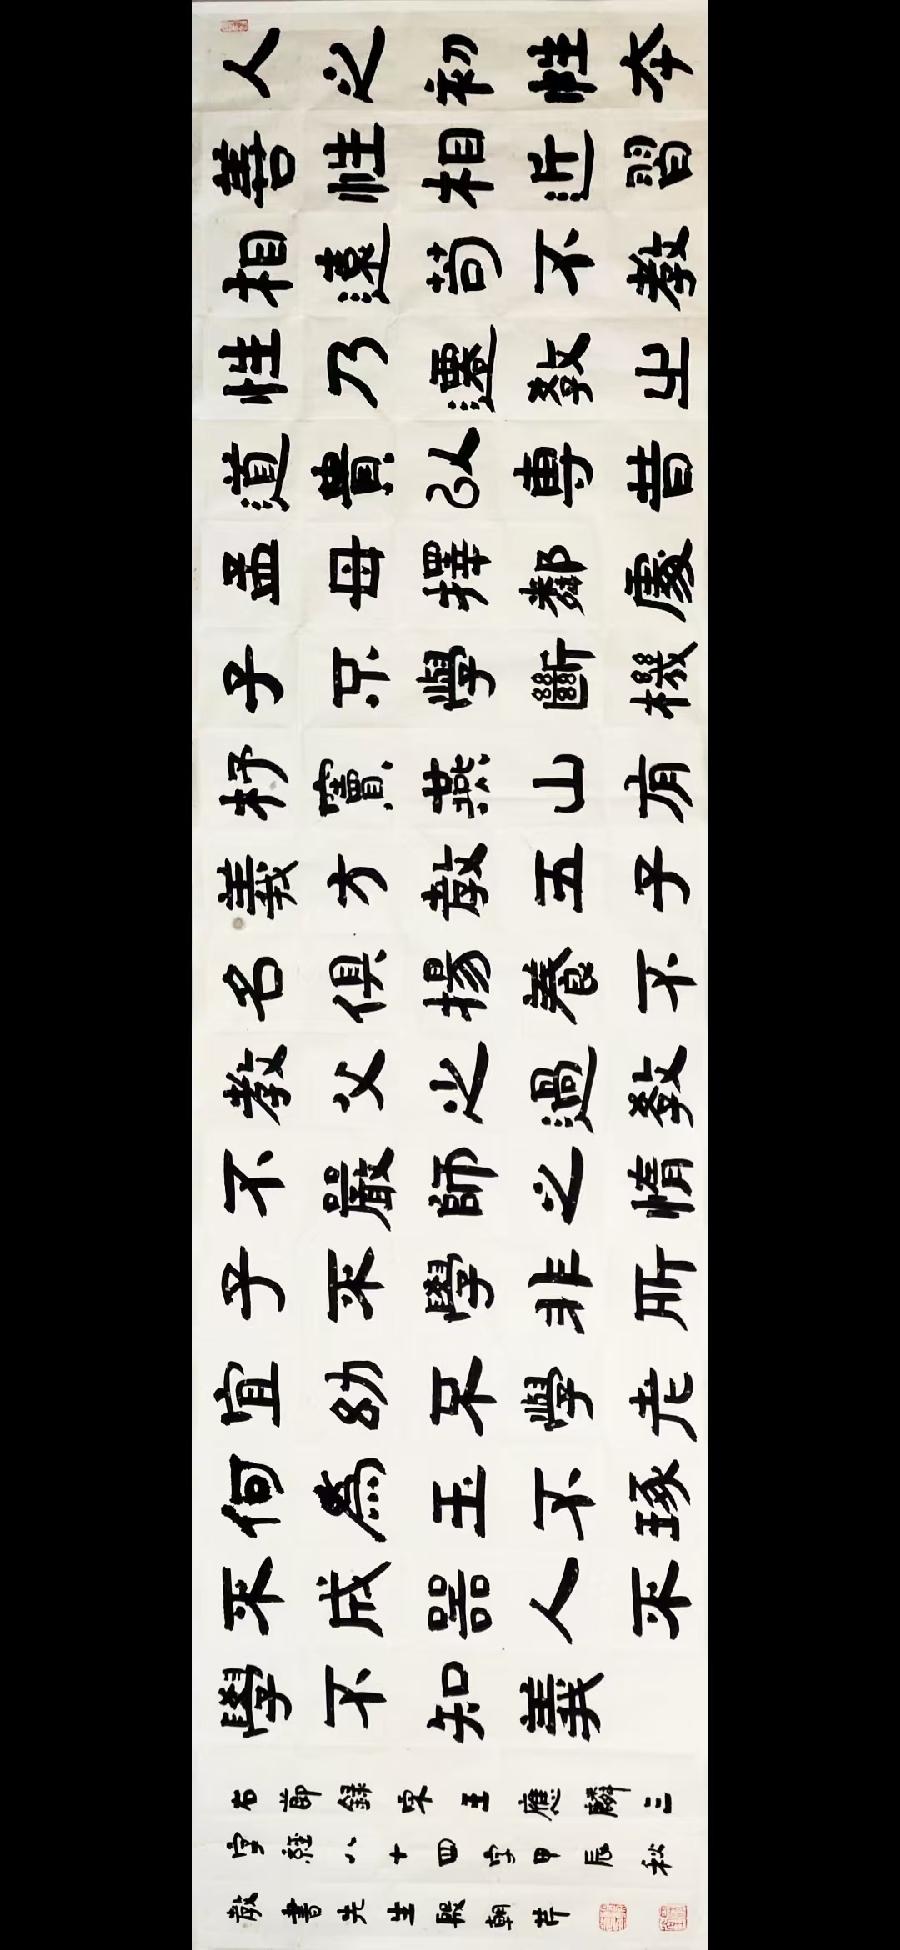 人之初性本
善性相近習
相遠苟不教
性乃遷教之
道貴以專昔
孟母擇鄰處
子不學斷機
杼竇燕山有
義方教五子
名俱揚養不
教父之過教
不嚴師之惰
子不學非所
宜幼不學老
何為玉不琢
不成器人不
學不知義
右節錄宋王應麟三
字經八十四字甲辰秋
教書先生殷朝芹